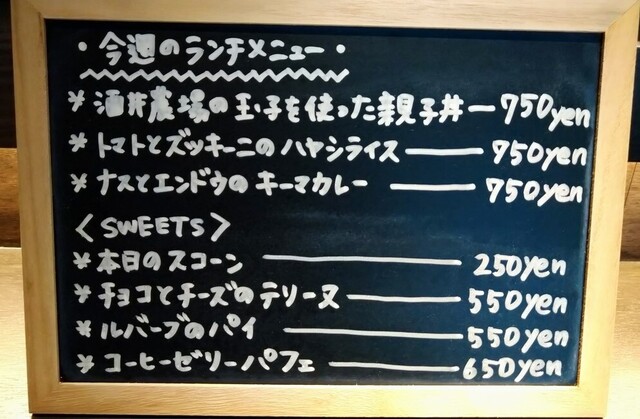 ・今週のランチメニュー・
* 酒井農場の玉子を使った親子丼 ― 750yen
* トマトとズッキーニのハヤシライス ― 950yen
* ナスとエンドウのキーマカレー ― 950yen
〈SWEETS〉
* 本日のスコーン ― 250yen
* チョコとチーズのテリーヌ ― 550yen
* ルバーブのパイ ― 550yen
* コーヒーゼリーパフェ ― 650yen